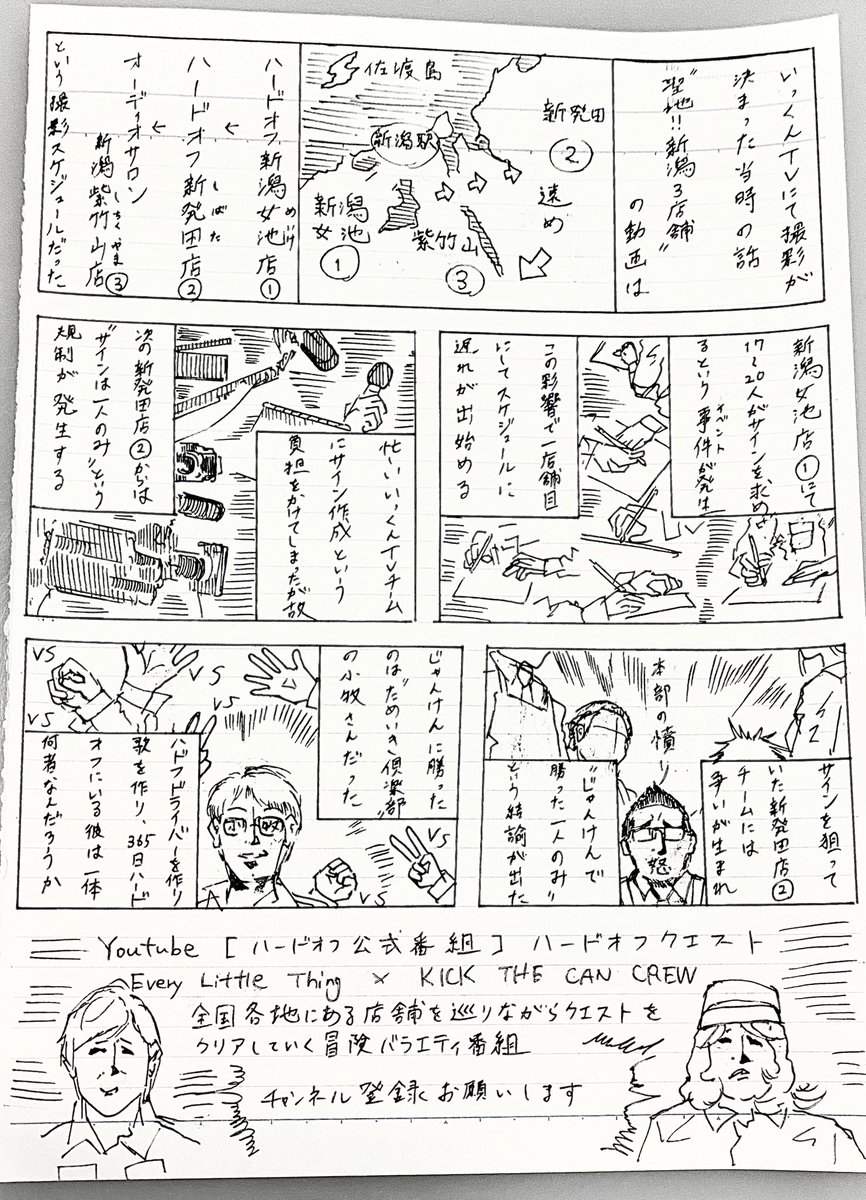 いっくんTVにて撮影が
決まった当時の話
"聖地!!新潟3店舗"
の動画は
佐渡島
新潟駅
新発田
②
遠め
新潟
女池
①
紫竹山
③
ハードオフ新潟女池店①
めいけ
↓
ハードオフ新発田店②
しばた
↓
オーディオサロン
新潟紫竹山店③
しちくやま
という撮影スケジュールだった
新潟女池店①にて
17〜20人がサインを求め
るという事件が発生
イベント
この影響で一店舗目
にしてスケジュールに
遅れが出始める
忙しいいっくんTVチーム
にサイン作成という
負担をかけてしまったが故
次の新発田店②からは
"サインは一人のみ"という
規制が発生する
サインを狙って
いた新発田店②
チームには
争いが生まれ
本部の憤り
怒
"じゃんけんで
勝った一人のみ"
という結論が出た
じゃんけんに勝った
のは"ためいき倶楽部"
の小牧さんだった
VS
VS
VS
VS
VS
VS
ハドフドライバーを作り
歌を作り、365日ハード
オフにいる彼は一体
何者なんだろうか
Youtube [ハードオフ公式番組] ハードオフクエスト
Every Little Thing × KICK THE CAN CREW
全国各地にある店舗を巡りながらクエストを
クリアしていく冒険バラエティ番組
チャンネル登録お願いします